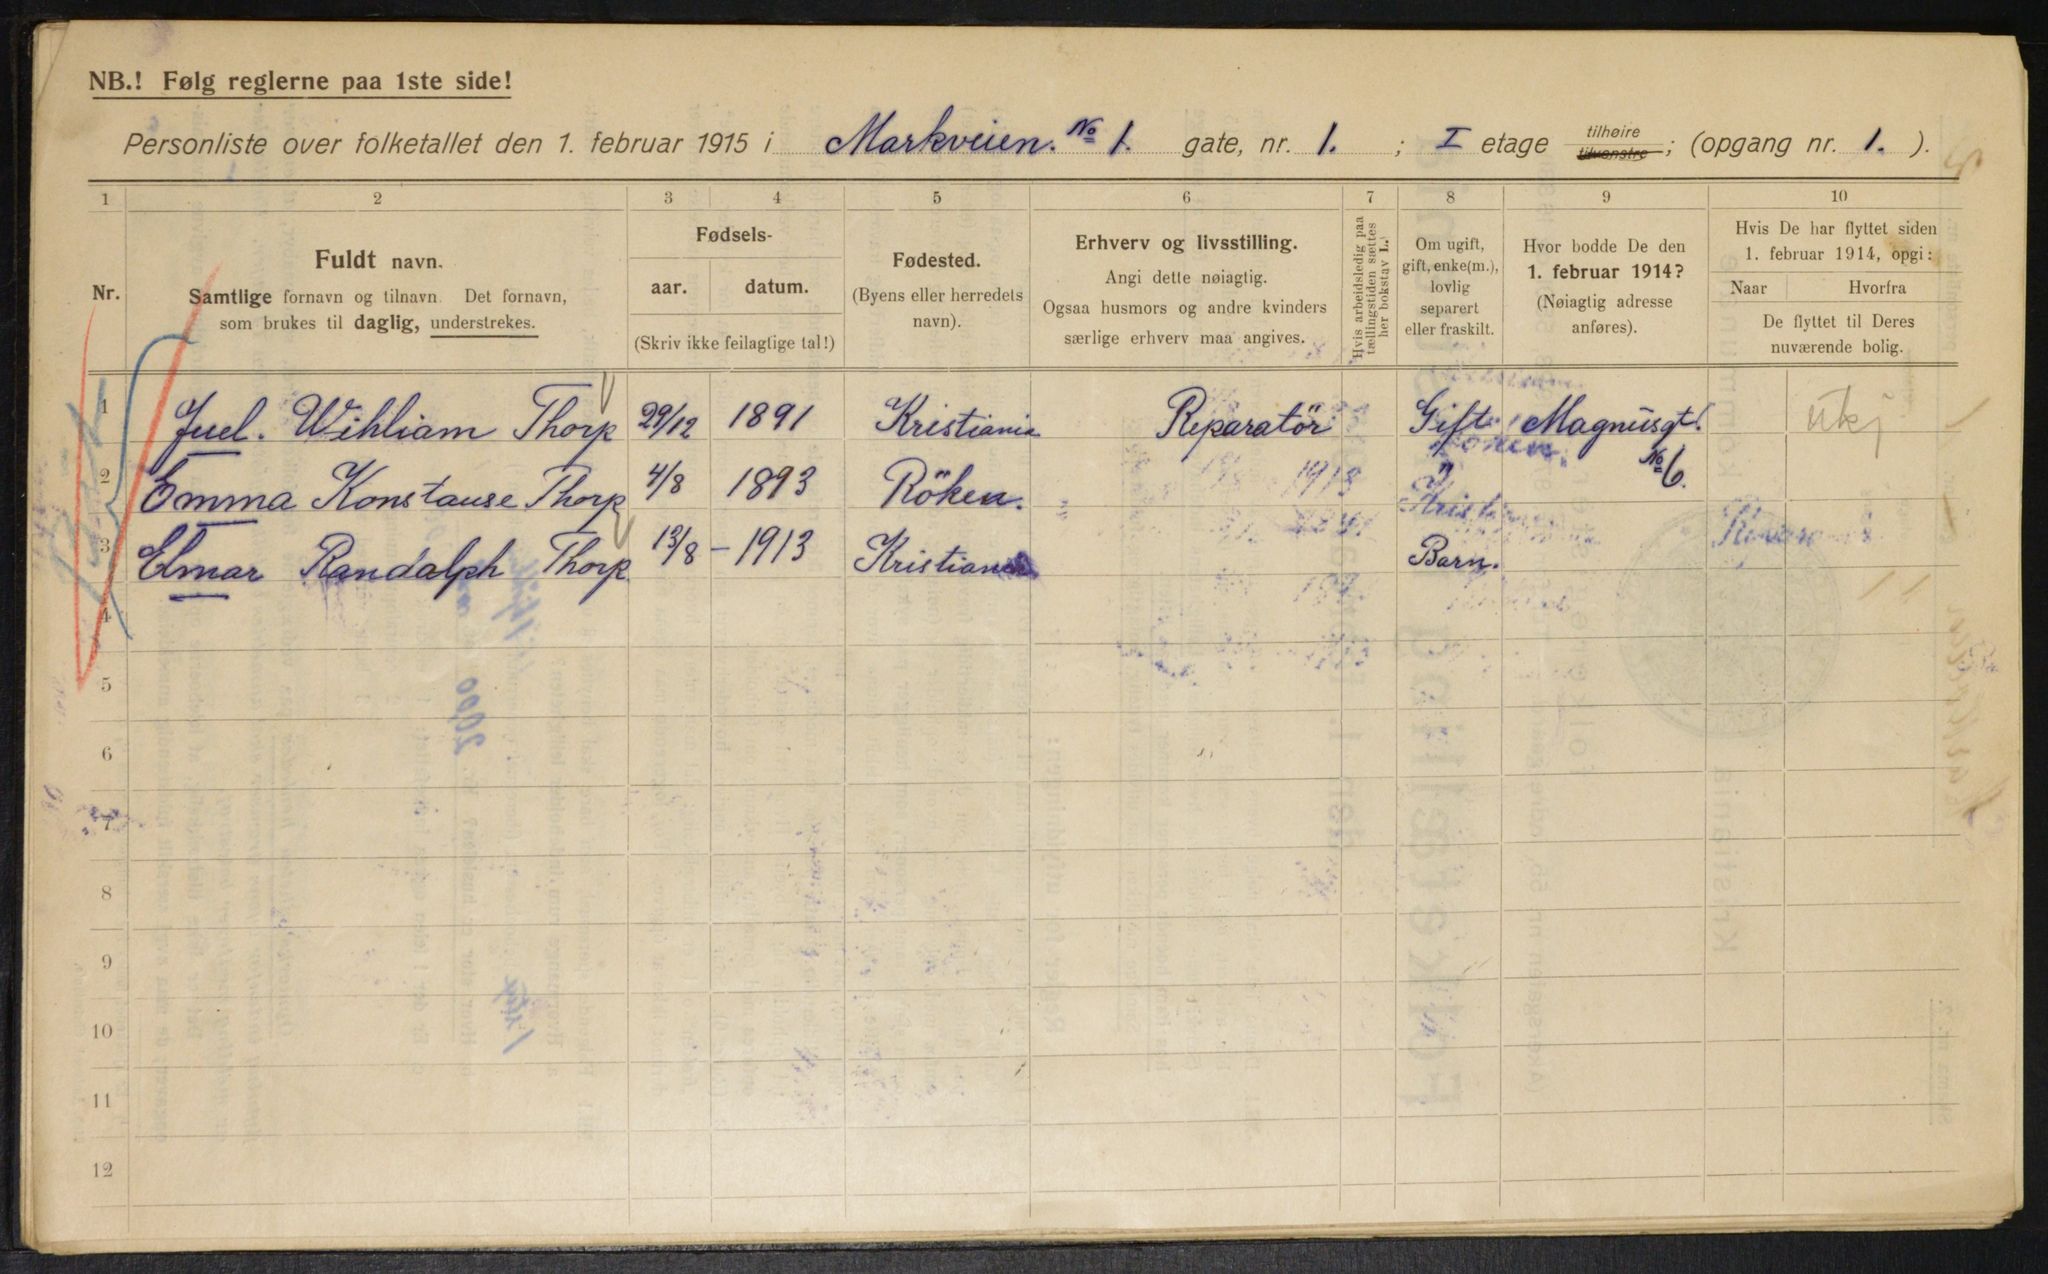 NB.! Følg reglerne paa 1ste side!
Personliste over folketallet den 1. februar 1915 i Markveien. No 1. gate, nr. 1. ; I etage tilhøire tilvenstre; (opgang nr. 1. ).
1 2 3 4 5 6 7 8 9 10
Nr.
Fuldt navn.
Samtlige fornavn og tilnavn. Det fornavn,
som brukes til daglig, understrekes.
Fødsels-
aar. datum.
(Skriv ikke feilagtige tal!)
Fødested.
(Byens eller herredets
navn).
Erhverv og livsstilling.
Angi dette nøiagtig.
Ogsaa husmors og andre kvinders
særlige erhverv maa angives.
Hvis arbeidsledig paa
tællingstiden sættes
her bokstav L.
Om ugift,
gift, enke(m.),
lovlig
separert
eller fraskilt.
Hvor bodde De den
1. februar 1914?
(Nøiagtig adresse
anføres).
Hvis De har flyttet siden
1. februar 1914, opgi:
Naar Hvorfra
De flyttet til Deres
nuværende bolig.
1 Juel. Wihliam Thorp 29/12 1891 Kristiania Reparatör Gift. Magnusgt. ukj
2 Emma Konstanse Thorp 4/8 1893 Röken. " " No 6.
3 Elmar Randalph Thorp 13/8 – 1913 Kristiania Barn.
4
5
6
7
8
9
10
11
12